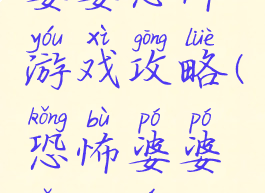 yóu xì gōng lüè
游戏攻略(
kǒng bù pó pó
恐怖婆婆